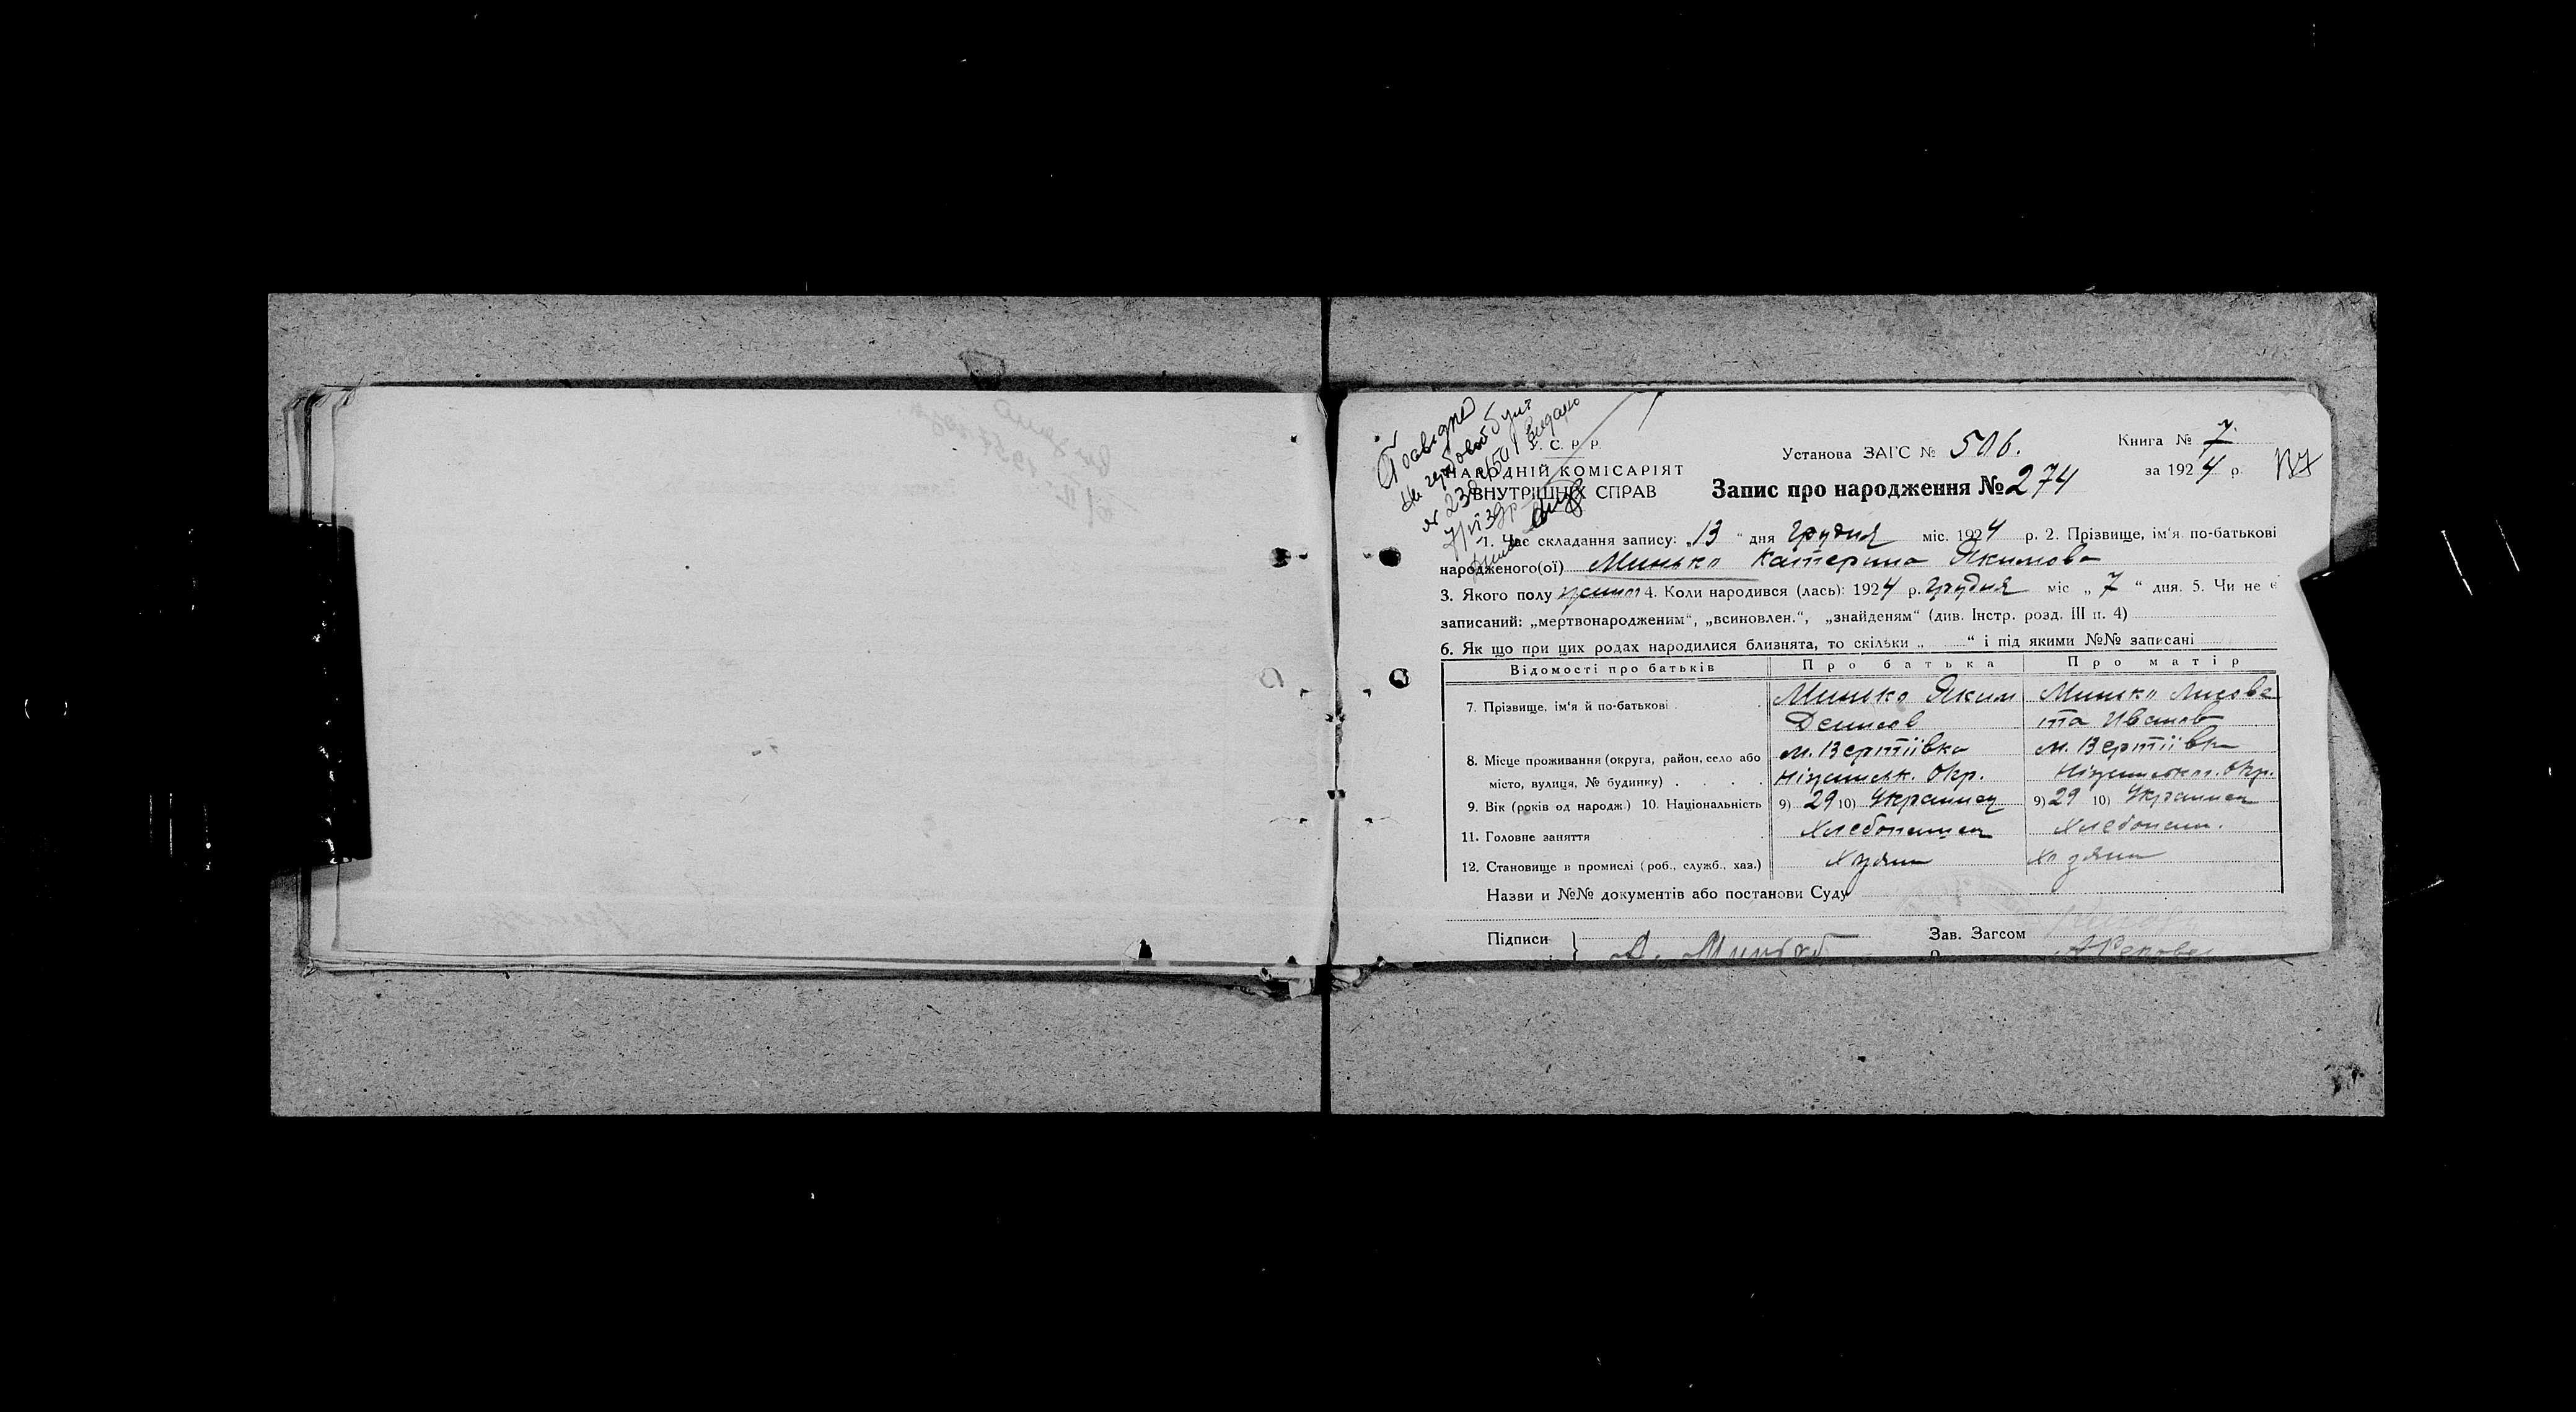 Посвідка
на гербовой бум
№ 231501 видано
У. С. Р. Р.
НАРОДНІЙ КОМІСАРІЯТ
ВНУТРІШНІХ СПРАВ
Установа ЗАГС № 506.
Книга № 7
за 1924 р.
Запис про народження № 274
1. Час складання запису: „13“ дня грудня міс. 1924 р. 2. Прізвище, ім'я по-батькові
народженого(ої) Минько Катерина Якимова
3. Якого полу 4. Коли народився (лась): 1924 р. грудня міс „7“ дня. 5. Чи не є
записаний: „мертвонародженим“, „всиновлен.“, „знайденям“ (див. Інстр. розд. III п. 4)
6. Як що при цих родах народилися близнята, то скільки „ “ і під якими №№ записані
Відомості про батьків Про батька Про матір
7. Прізвище, ім'я й по-батькові Минько Яким Минько Лисове
Денисов та Иванов
8. Місце проживання (округа, район, село або м. Вертіївка м. Вертіївка
місто, вулиця, № будинку) Ніженськ. Окр. Ніженськ. Окр.
9. Вік (років од народж.) 10. Національність 9) 29 10) Украинец 9) 29 10) Украинец
11. Головне заняття Хлебопашец Хлебопаш.
12. Становище в промислі (роб., служб., хаз.) Хозяин Хозяин
Назви и №№ документів або постанови Суду
Підписи Зав. Загсом
Я. Минько